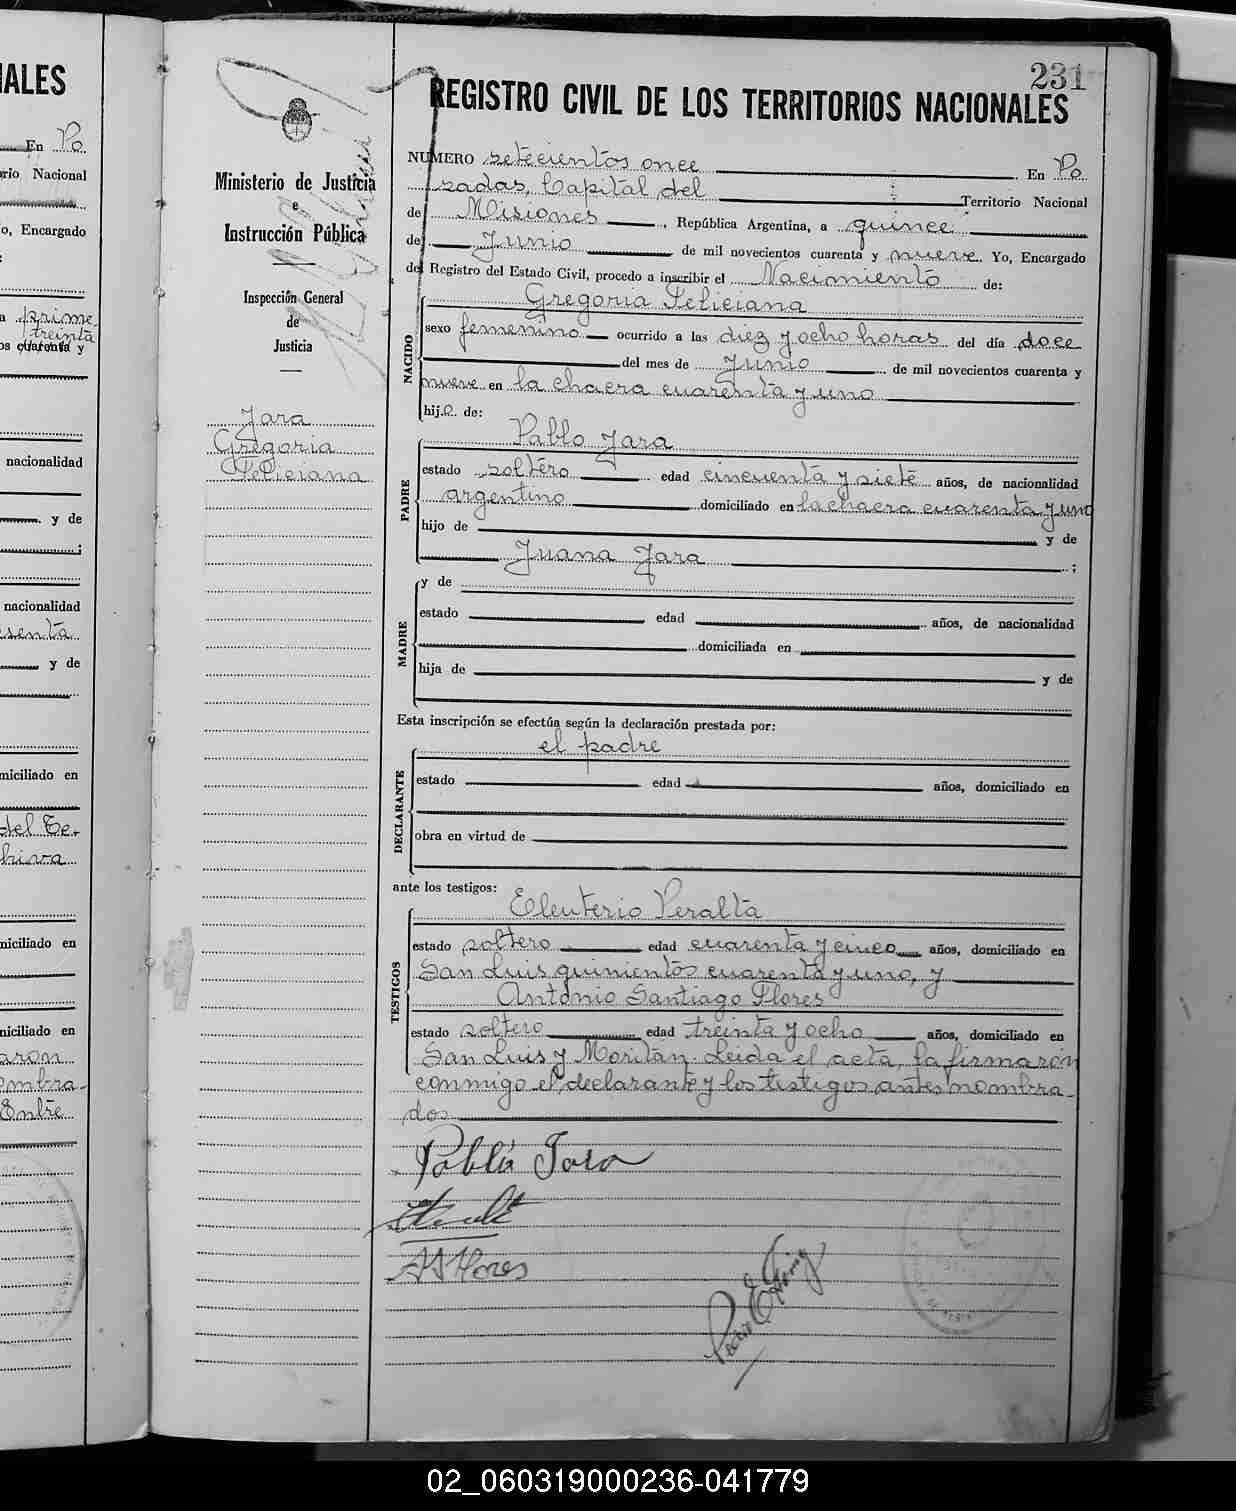 IALES
En Po
rio Nacional
o, Encargado
a prime
treinta
os cuarenta y
nacionalidad
y de
;
nacionalidad
esenta
y de
miciliado en
del Te-
hiva
niciliado en
niciliado en
aron
ombra-
Entre
231
REGISTRO CIVIL DE LOS TERRITORIOS NACIONALES
Ministerio de Justicia
e
Instrucción Pública
Inspección General
de
Justicia
Jara
Gregoria
Feliciana
NUMERO setecientos once En Po
sadas, Capital del Territorio Nacional
de Misiones, República Argentina, a quince
de Junio de mil novecientos cuarenta y nueve. Yo, Encargado
del Registro del Estado Civil, procedo a inscribir el Nacimiento de:
NACIDO
Gregoria Feliciana
sexo femenino ocurrido a las diez y ocho horas del día doce
del mes de Junio de mil novecientos cuarenta y
nueve en la chacra cuarenta y uno
hija de:
PADRE
Pablo Jara
estado soltero edad cincuenta y siete años, de nacionalidad
argentino domiciliado en la chacra cuarenta y uno
hijo de y de
Juana Jara ;
MADRE
y de
estado edad años, de nacionalidad
domiciliada en
hija de y de
Esta inscripción se efectúa según la declaración prestada por:
DECLARANTE
el padre
estado edad años, domiciliado en
obra en virtud de
ante los testigos:
TESTIGOS
Eleuterio Peralta
estado soltero edad cuarenta y cinco años, domiciliado en
San Luis quinientos cuarenta y uno, y
Antonio Santiago Flores
estado soltero edad treinta y ocho años, domiciliado en
San Luis y Moritán. Leida el acta, la firmaron
conmigo el declarante y los testigos antes nombra-
dos
Pablo Jara
A S Flores
02_060319000236-041779